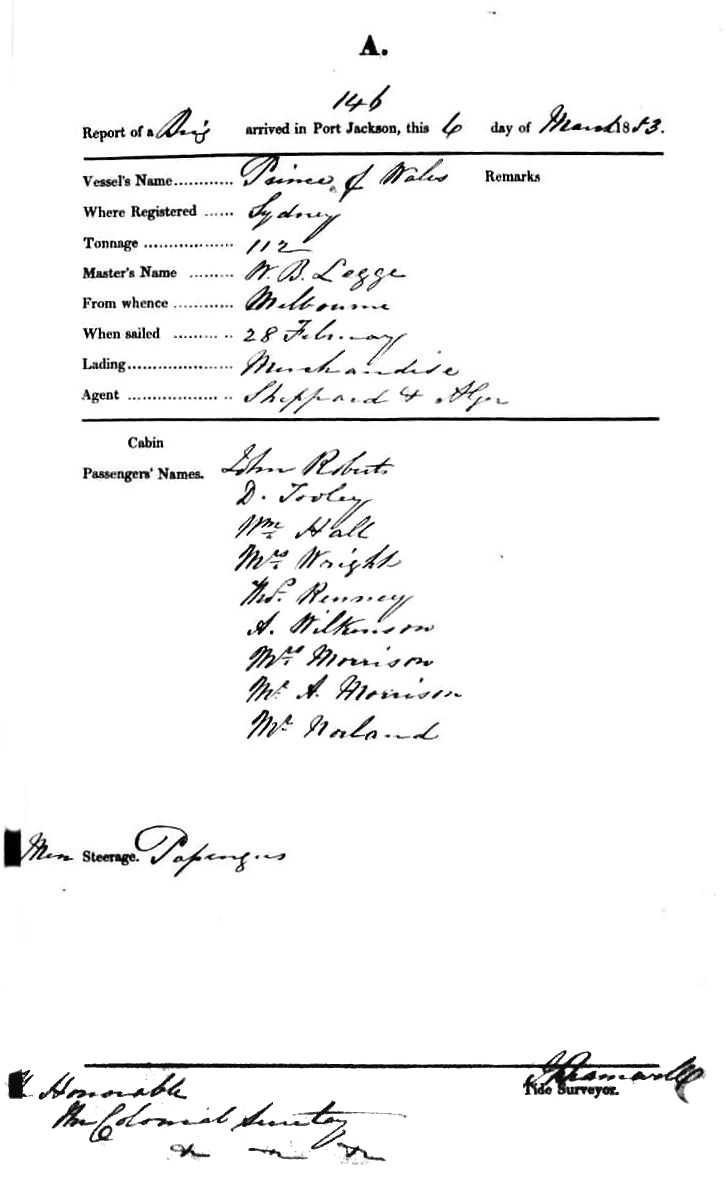 A.
146
Report of a Brig arrived in Port Jackson, this 6 day of March 1853.
Vessel's Name............ Prince of Wales Remarks
Where Registered ...... Sydney
Tonnage .................. 112
Master's Name ......... W. B. Legge
From whence ............ Melbourne
When sailed ......... .. 28 February
Lading..................... Merchandise
Agent .................. .. Sheppard & Alger
Cabin
Passengers' Names. John Roberts
D. Tooley
Wm Hall
Mrs Wright
Thos. Kenney
A. Wilkinson
Mrs Morrison
Mr A. Morrison
Mr Norland
Steerage. Passengers
Tide Surveyor.
Honorable
The Colonial Secretary